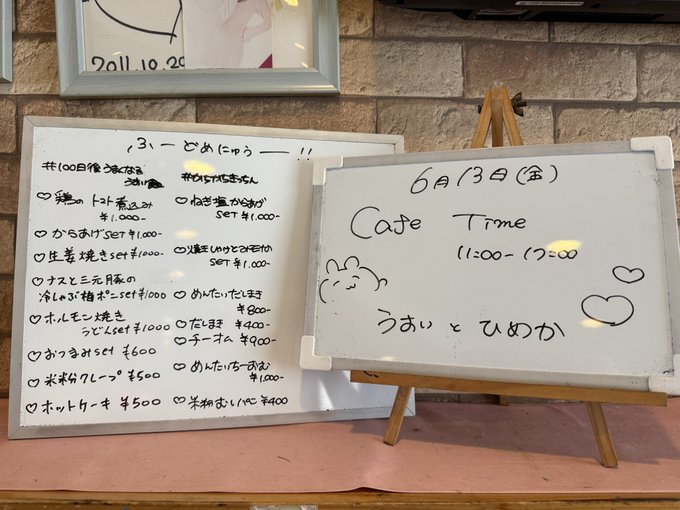 2011.10.29
ふーどめにゅうー!!
#100日後うまくなる
♡鶏のトマト煮込み
¥1.000-
♡からあげset ¥1.000-
♡生姜焼きset ¥1000-
♡ナスと三元豚の
冷しゃぶ梅ポンset ¥1000
♡ホルモン焼き
うどんset ¥1000
♡おつまみset ¥600
♡米粉クレープ ¥500
♡ホットケーキ ¥500
♡ねぎ塩からあげ
set ¥1.000-
set ¥1.000-
♡めんたいだしまき
¥800-
♡だしまき ¥400-
♡チーオム ¥900-
♡めんたいちーおむ
¥1.000-
♡米粉むしパン ¥400
6月13日(金)
Cafe Time
11:00-17:00
うすいとひめか